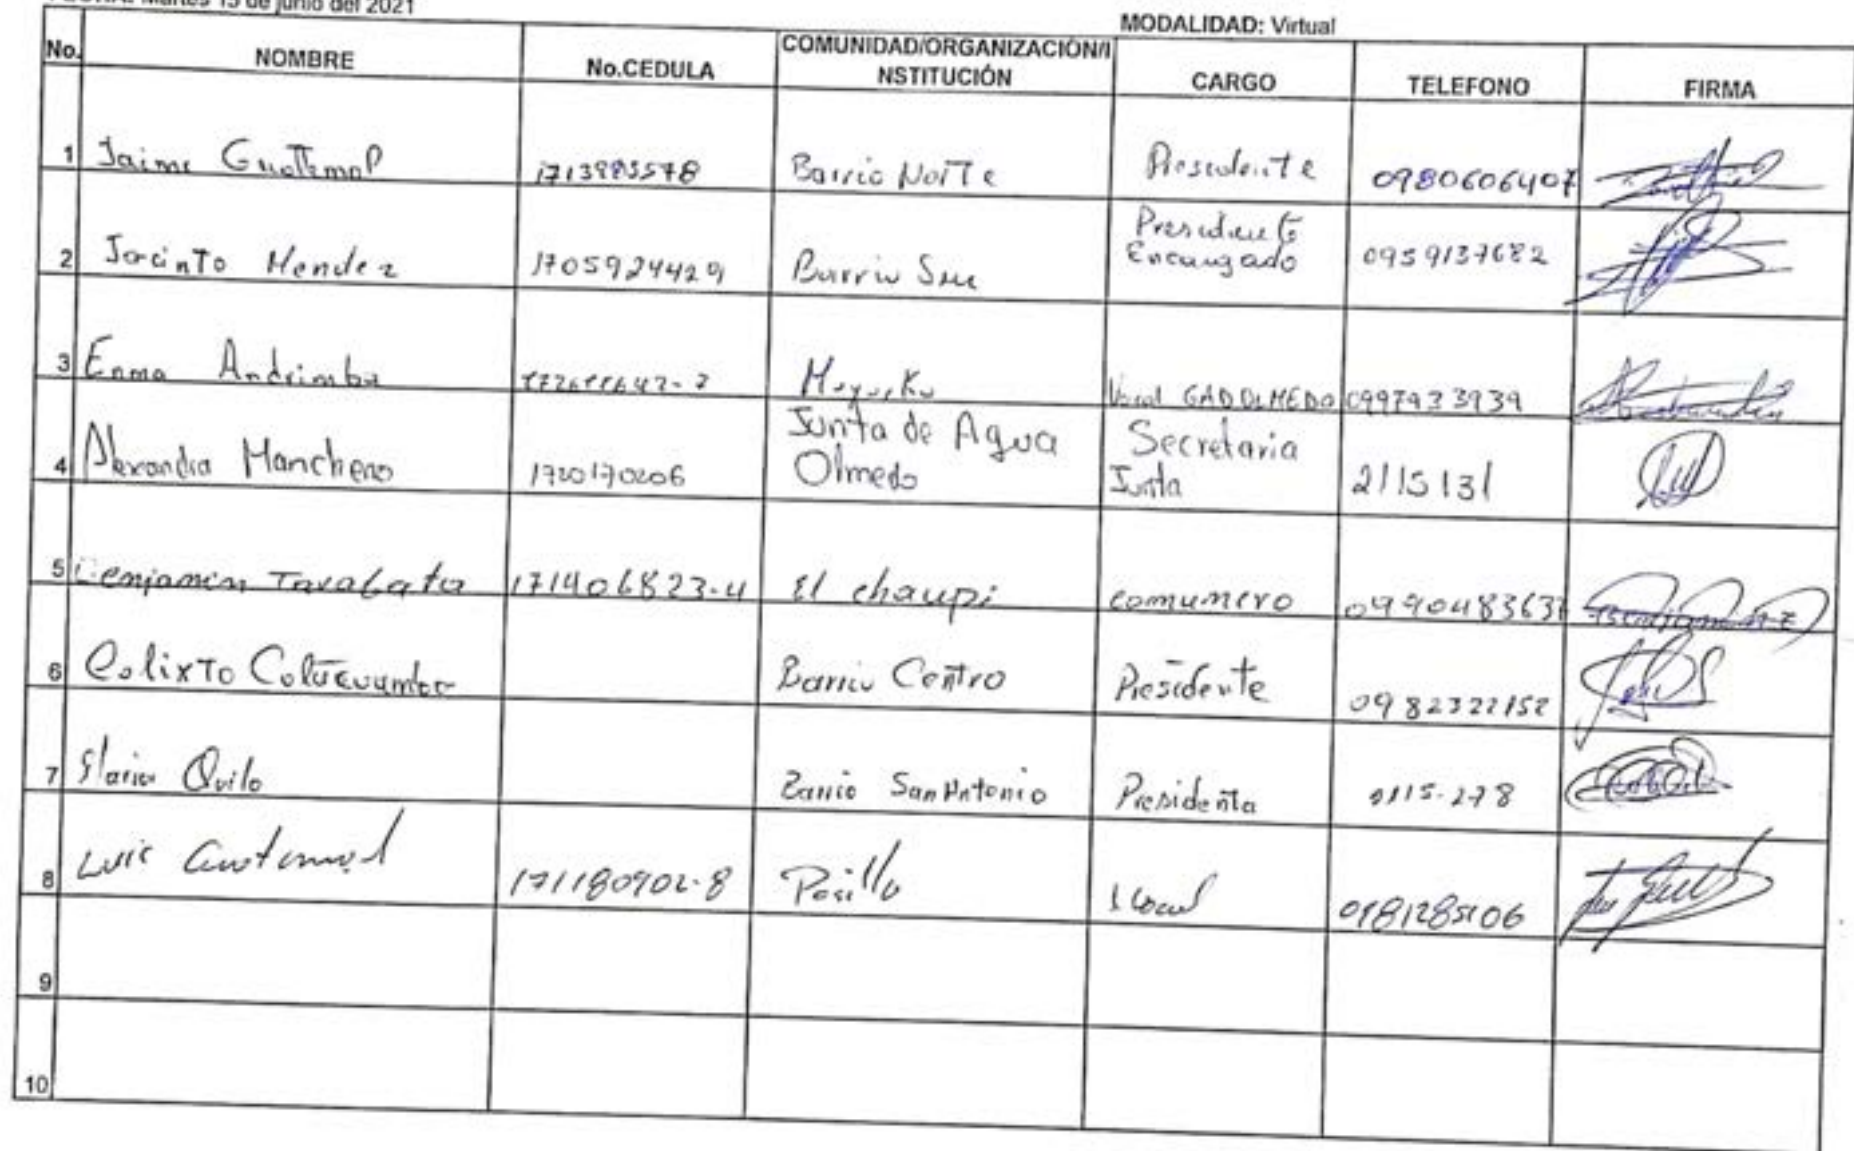 FECHA: Martes 15 de junio del 2021
MODALIDAD: Virtual
No. NOMBRE No.CEDULA COMUNIDAD/ORGANIZACIÓN/I NSTITUCIÓN CARGO TELEFONO FIRMA
1 Jaime Guatemal Barrio Norte Presidente 0980606407
2 Jacinto Mendez 1705924429 Barrio Sur Presidente Encargado 0959137682
3 Enma Andrimba Vocal GAD OLMEDO 0997933939
4 Alexandra Manchero 1720170206 Junta de Agua Olmedo Secretaria Junta 2115131
5 Benjamin 171406823-4 El chaupi comunero 0990483637
6 Calixto Barrio Centro Presidente 0982322152
7 Quilo Barrio San Antonio Presidenta
8 Luis Guatemal 171180902-8 Pesillo
9
10